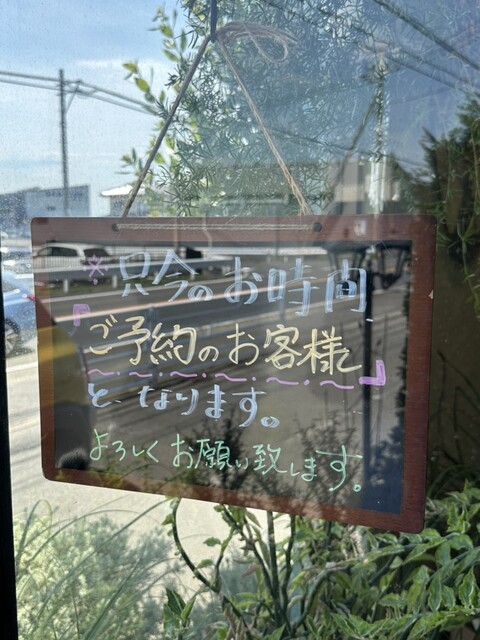 ※只今のお時間
『ご予約のお客様』
と、なります。
よろしくお願い致します。